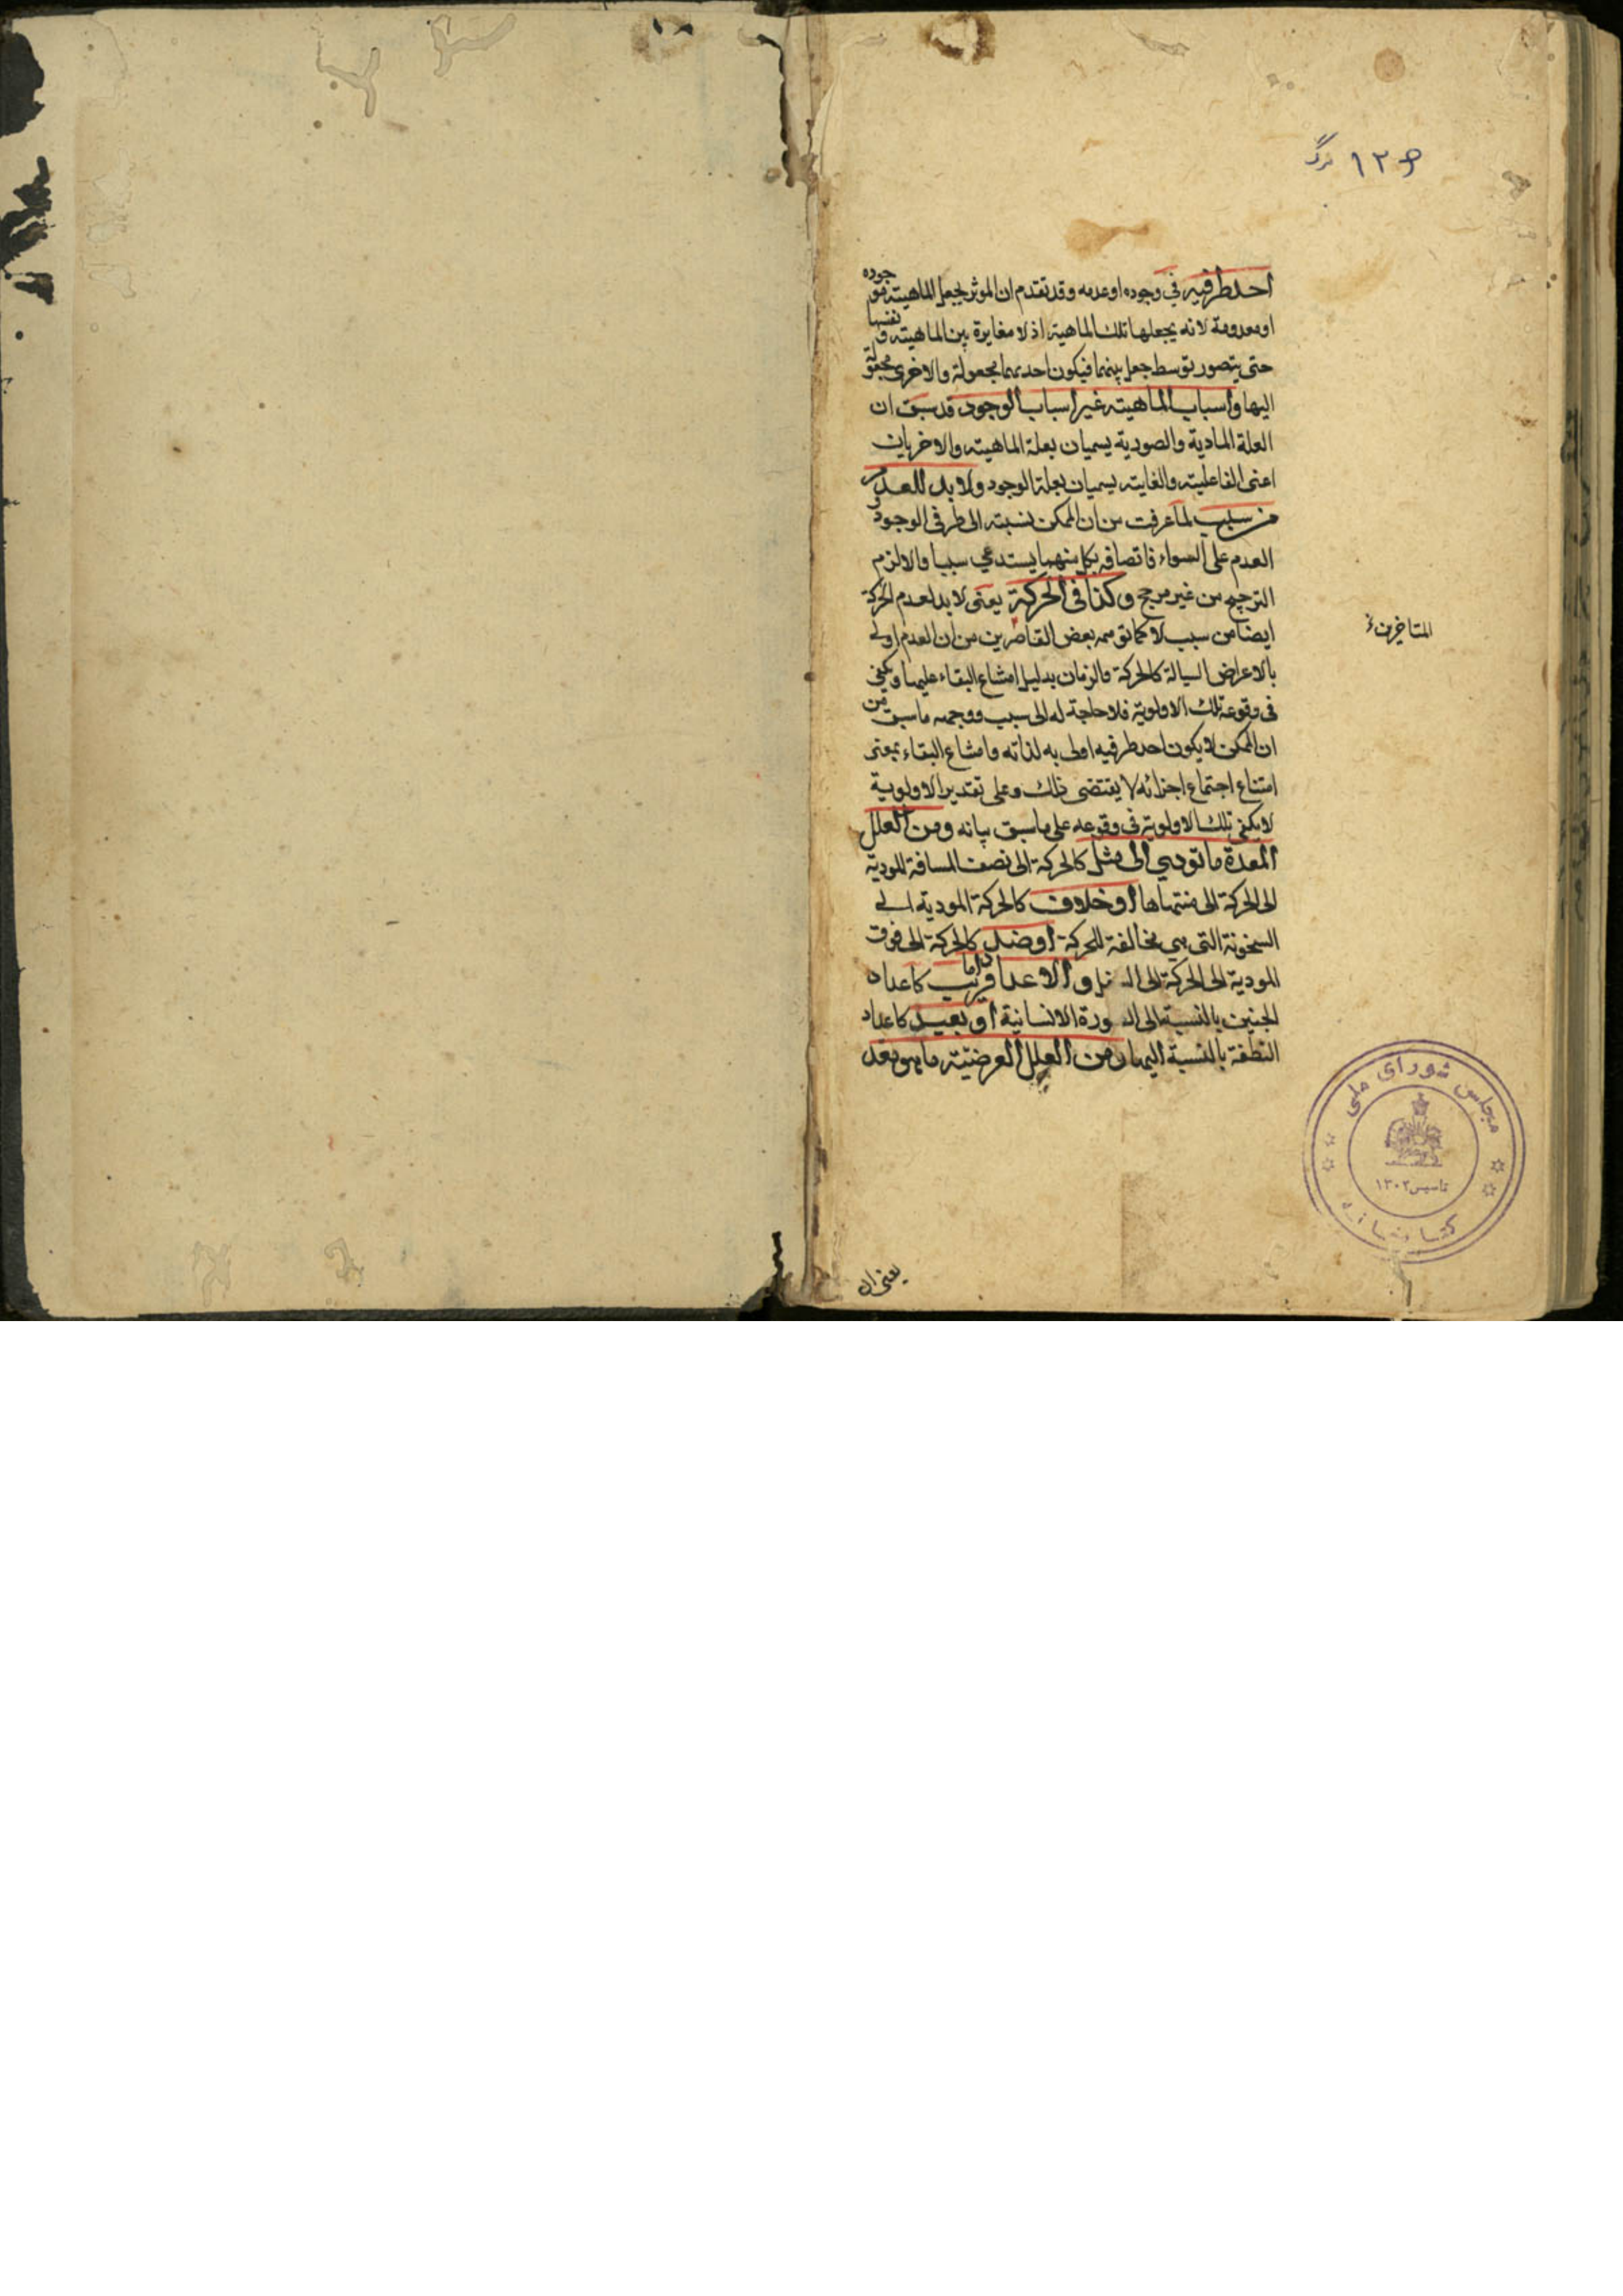 ١٢٩ برگ
احد طرفيه في وجوده او عدمه وقد تقدم ان الموثر يجعل الماهية موجوده
او معدومة لا انه يجعلها تلك الماهية اذ لا مغايرة بين الماهية ونفسها
حتى يتصور توسط جعل بينهما فيكون احديهما مجعولة والاخرى مجعولة
اليها واسباب الماهية غير اسباب الوجود قد سبق ان
العلة المادية والصورية يسميان بعلة الماهية والاخريان
اعنى الفاعلية والغاية يسميان بعلة الوجود ولا بد للعدم
من سبب لما عرفت من ان الممكن نسبته الى طرفى الوجود و
العدم على السواء فاتصافه بكل منهما يستدعي سببا والا لزم
الترجيح من غير مرجح وكذا فى الحركة يعنى لا بد لعدم الحركة
ايضا من سبب لا كما توهمه بعض القاصرين من ان العدم اولى
بالاعراض السيالة كالحركة والزمان بدليل امتناع البقاء عليها ويكفى
فى وقوعه تلك الاولوية فلا حاجة له الى سبب ووجهه ما سبق من
ان الممكن لا يكون احد طرفيه اولى به لذاته وامتناع البقاء بمعنى
امتناع اجتماع اجزائه لا يقتضى ذلك وعلى تقدير الاولوية
لا يكفى تلك الاولوية فى وقوعه على ما سبق بيانه ومن العلل
المعدة ما تودى الى مثل كالحركة الى نصف المسافة المودية
الى الحركة الى منتهاها او خلاف كالحركة المودية الى
السخونة التى هي مخالفة للحركة او ضد كالحركة الى فوق
المودية الى الحركة الى والاعداد قريب كاعداد
الجنين بالنسبة الى الصورة الانسانية او بعيد كاعداد
النطفة بالنسبة اليها ومن العلل العرضية ما هو معد
المتاخرين
يعنى ان
مجلس شوراى ملى
تاسيس ١٣٠٢
كتابخانه